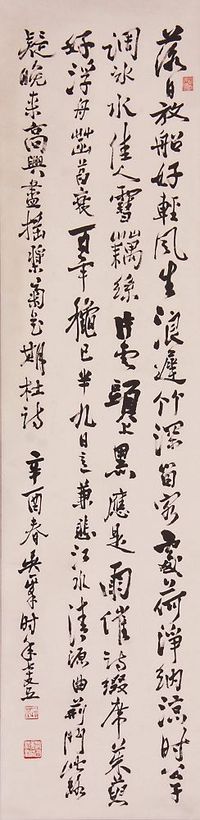 落日放船好輕風生浪遲竹深留客處荷淨納涼时公子
調冰水佳人雪藕絲片雲頭上黑應是雨催诗缀席茱萸
好浮舟菡萏衰百年秋已半九日意兼悲江水清源曲荆門此路
疑晚来高興盡摇蕩菊花期杜诗 辛酉春吳峯时年七十五